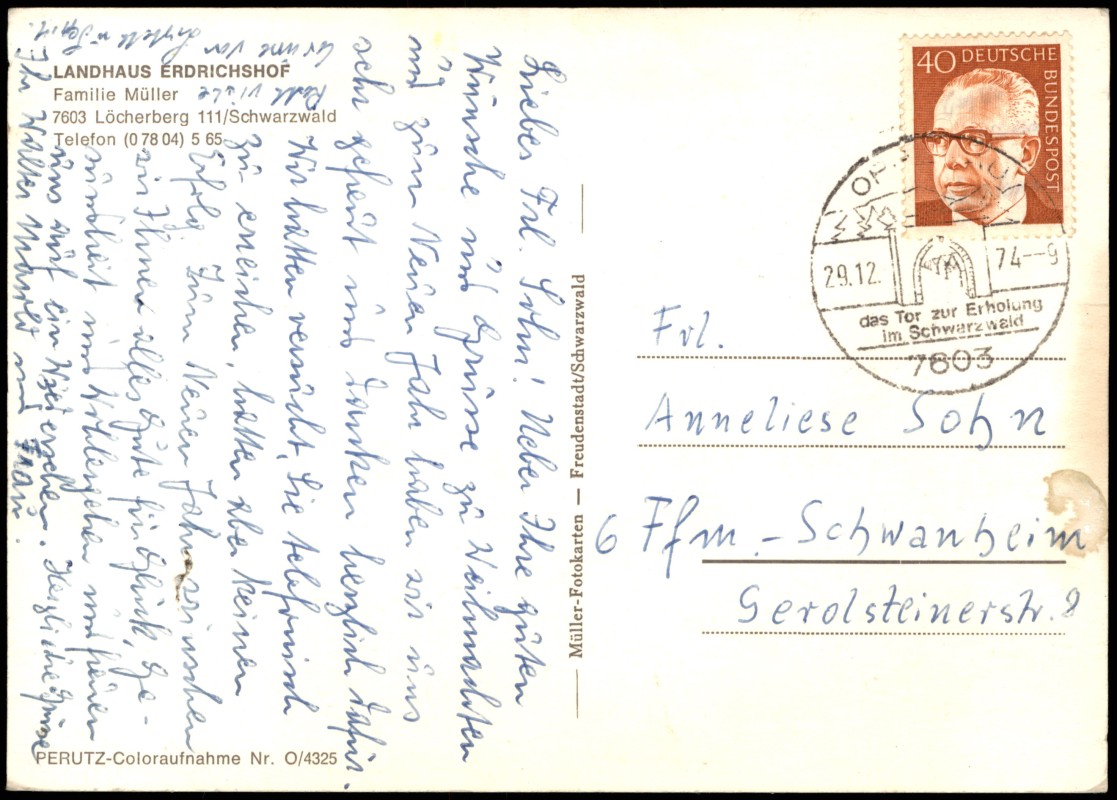 LANDHAUS ERDRICHSHOF
Familie Müller
7603 Löcherberg 111/Schwarzwald
Telefon (0 78 04) 5 65
Liebes Frl. Sohn! Ueber Ihre guten
Wünsche und Grüsse zu Weihnachten
und zum Neuen Jahr haben wir uns
sehr gefreut und danken herzlich dafür.
Wir hatten versucht, Sie telefonisch
zu erreichen, hatten aber keinen
Erfolg. Zum Neuen Jahr wünschen
wir Ihnen alles Gute für Glück, Ge-
sundheit und Wohlergehen und freuen
uns auf ein Wiedersehen. Herzliche Grüsse
Ihr Walter und Frau.
Recht viele
Grüsse von
PERUTZ-Coloraufnahme Nr. O/4325
Müller-Fotokarten — Freudenstadt/Schwarzwald
40 DEUTSCHE
BUNDESPOST
29.12. 74--9
das Tor zur Erholung
im Schwarzwald
7603
Frl.
Anneliese Sohn
6 Ffm.-Schwanheim
Gerolsteinerstr. 8